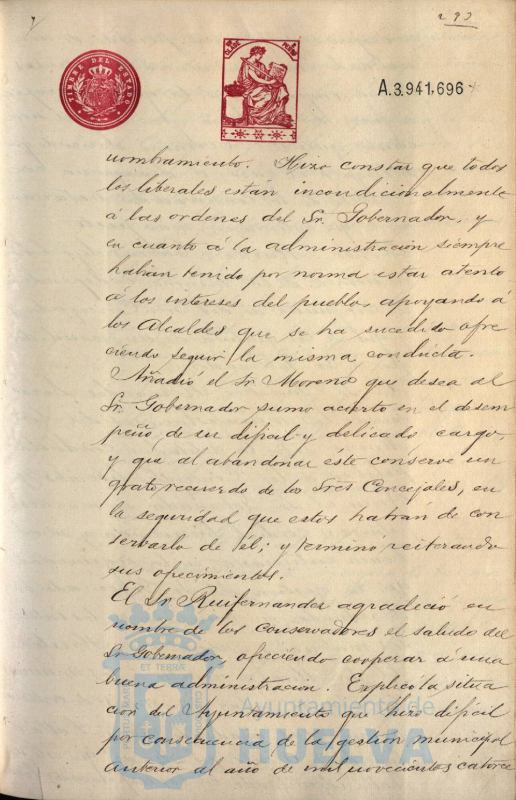 293
TIMBRE DEL ESTADO
A.3.941.696
nombramiento. Hizo constar que todos
los liberales están incondicionalmente
á las ordenes del Sr. Gobernador, y
en cuanto á la administración siempre
habian tenido por norma estar atento
á los intereses del pueblo, apoyando á
los Alcaldes que se ha sucedido ofre
ciendo seguir la misma conducta.
Añadió el Sr Moreno que desea al
Sr. Gobernador sumo acierto en el desem
peño de su dificil y delicado cargo,
y que al abandonar éste conserve un
grato recuerdo de los Sres Concejales, en
la seguridad que estos habran de con
servarlo de él; y terminó reiterando
sus ofrecimientos.
El Sr Ruifernandez agradeció en
nombre de los conservadores el saludo del
Sr Gobernador, ofreciendo cooperar á una
buena administracion. Explicó la situa
cion del Ayuntamiento que hizo dificil
por consecuencia de la gestion municipal
anterior al año de mil novecientos catorce
ET TERRÆ
Ayuntamiento de
HUELVA